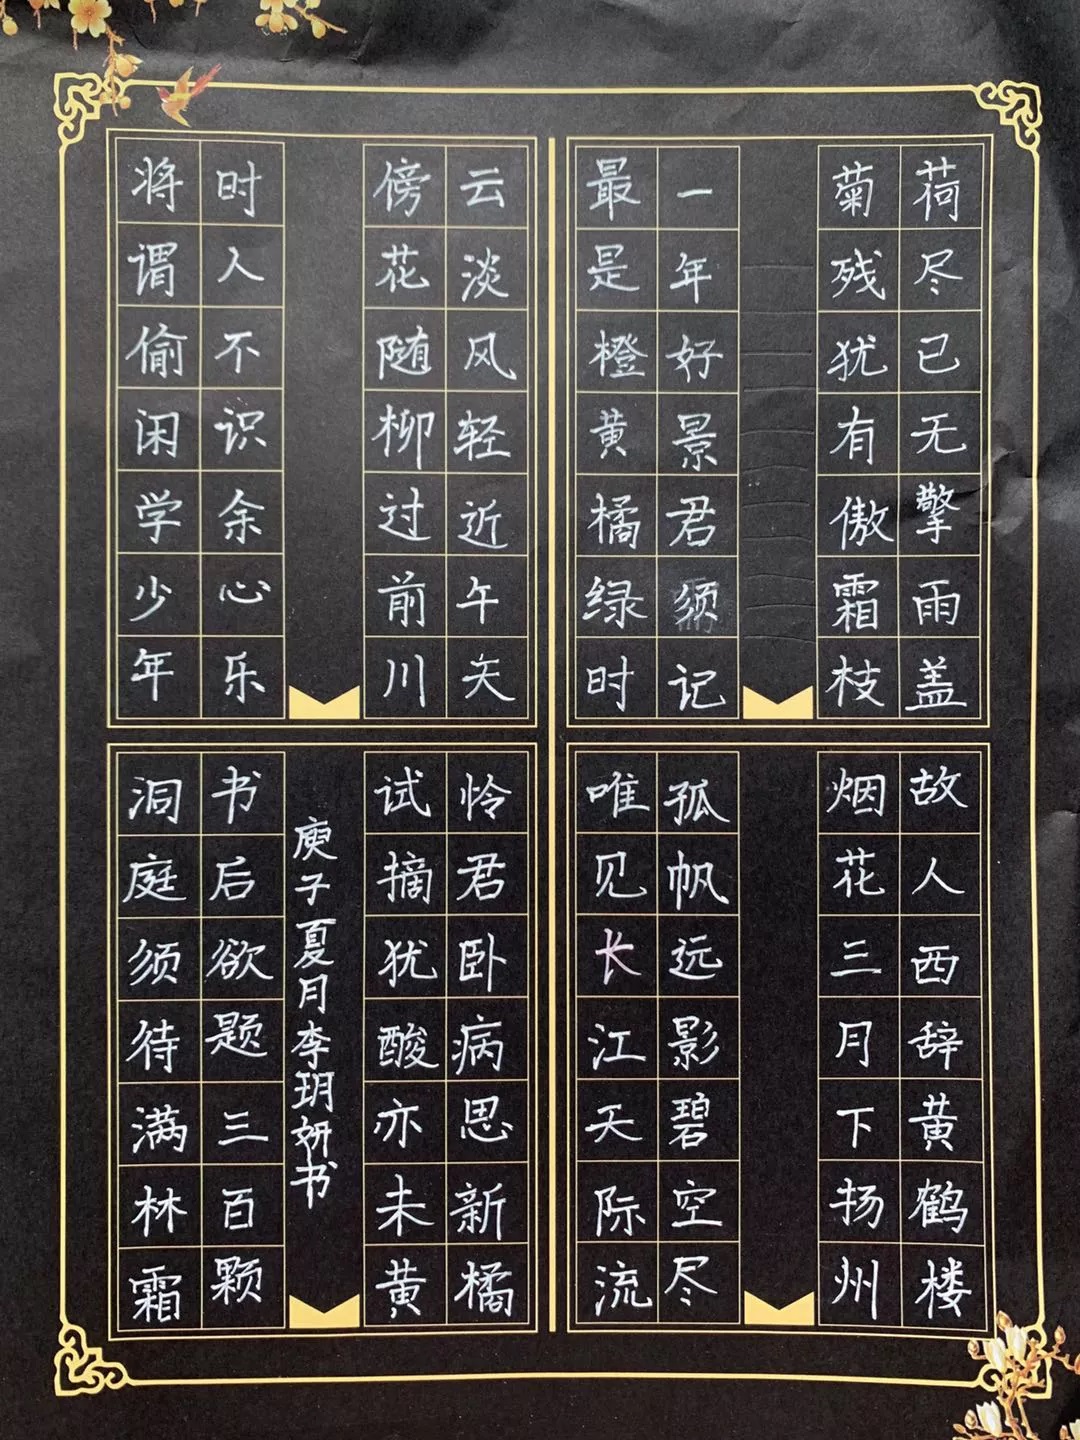 荷尽已无擎雨盖
菊残犹有傲霜枝
一年好景君须记
最是橙黄橘绿时
云淡风轻近午天
傍花随柳过前川
时人不识余心乐
将谓偷闲学少年
故人西辞黄鹤楼
烟花三月下扬州
孤帆远影碧空尽
唯见长江天际流
怜君卧病思新橘
试摘犹酸亦未黄
书后欲题三百颗
洞庭须待满林霜
庚子夏月李玥妍书